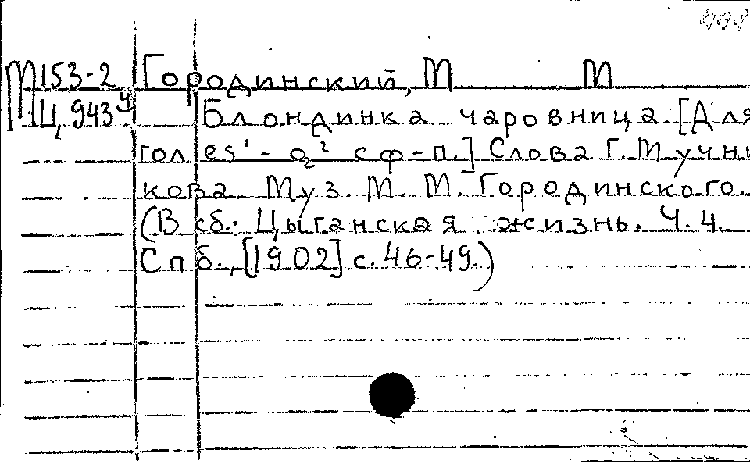 М153-2 Городинский, М М
Ц 943ч Блондинка чаровница. [Для
гол es¹-g² с ф-п.] Слова Г. Мучни
кова. Муз. М. М. Городинского.
(В сб: Цыганская жизнь. Ч. 4.
Спб., [1902] с. 46-49.)